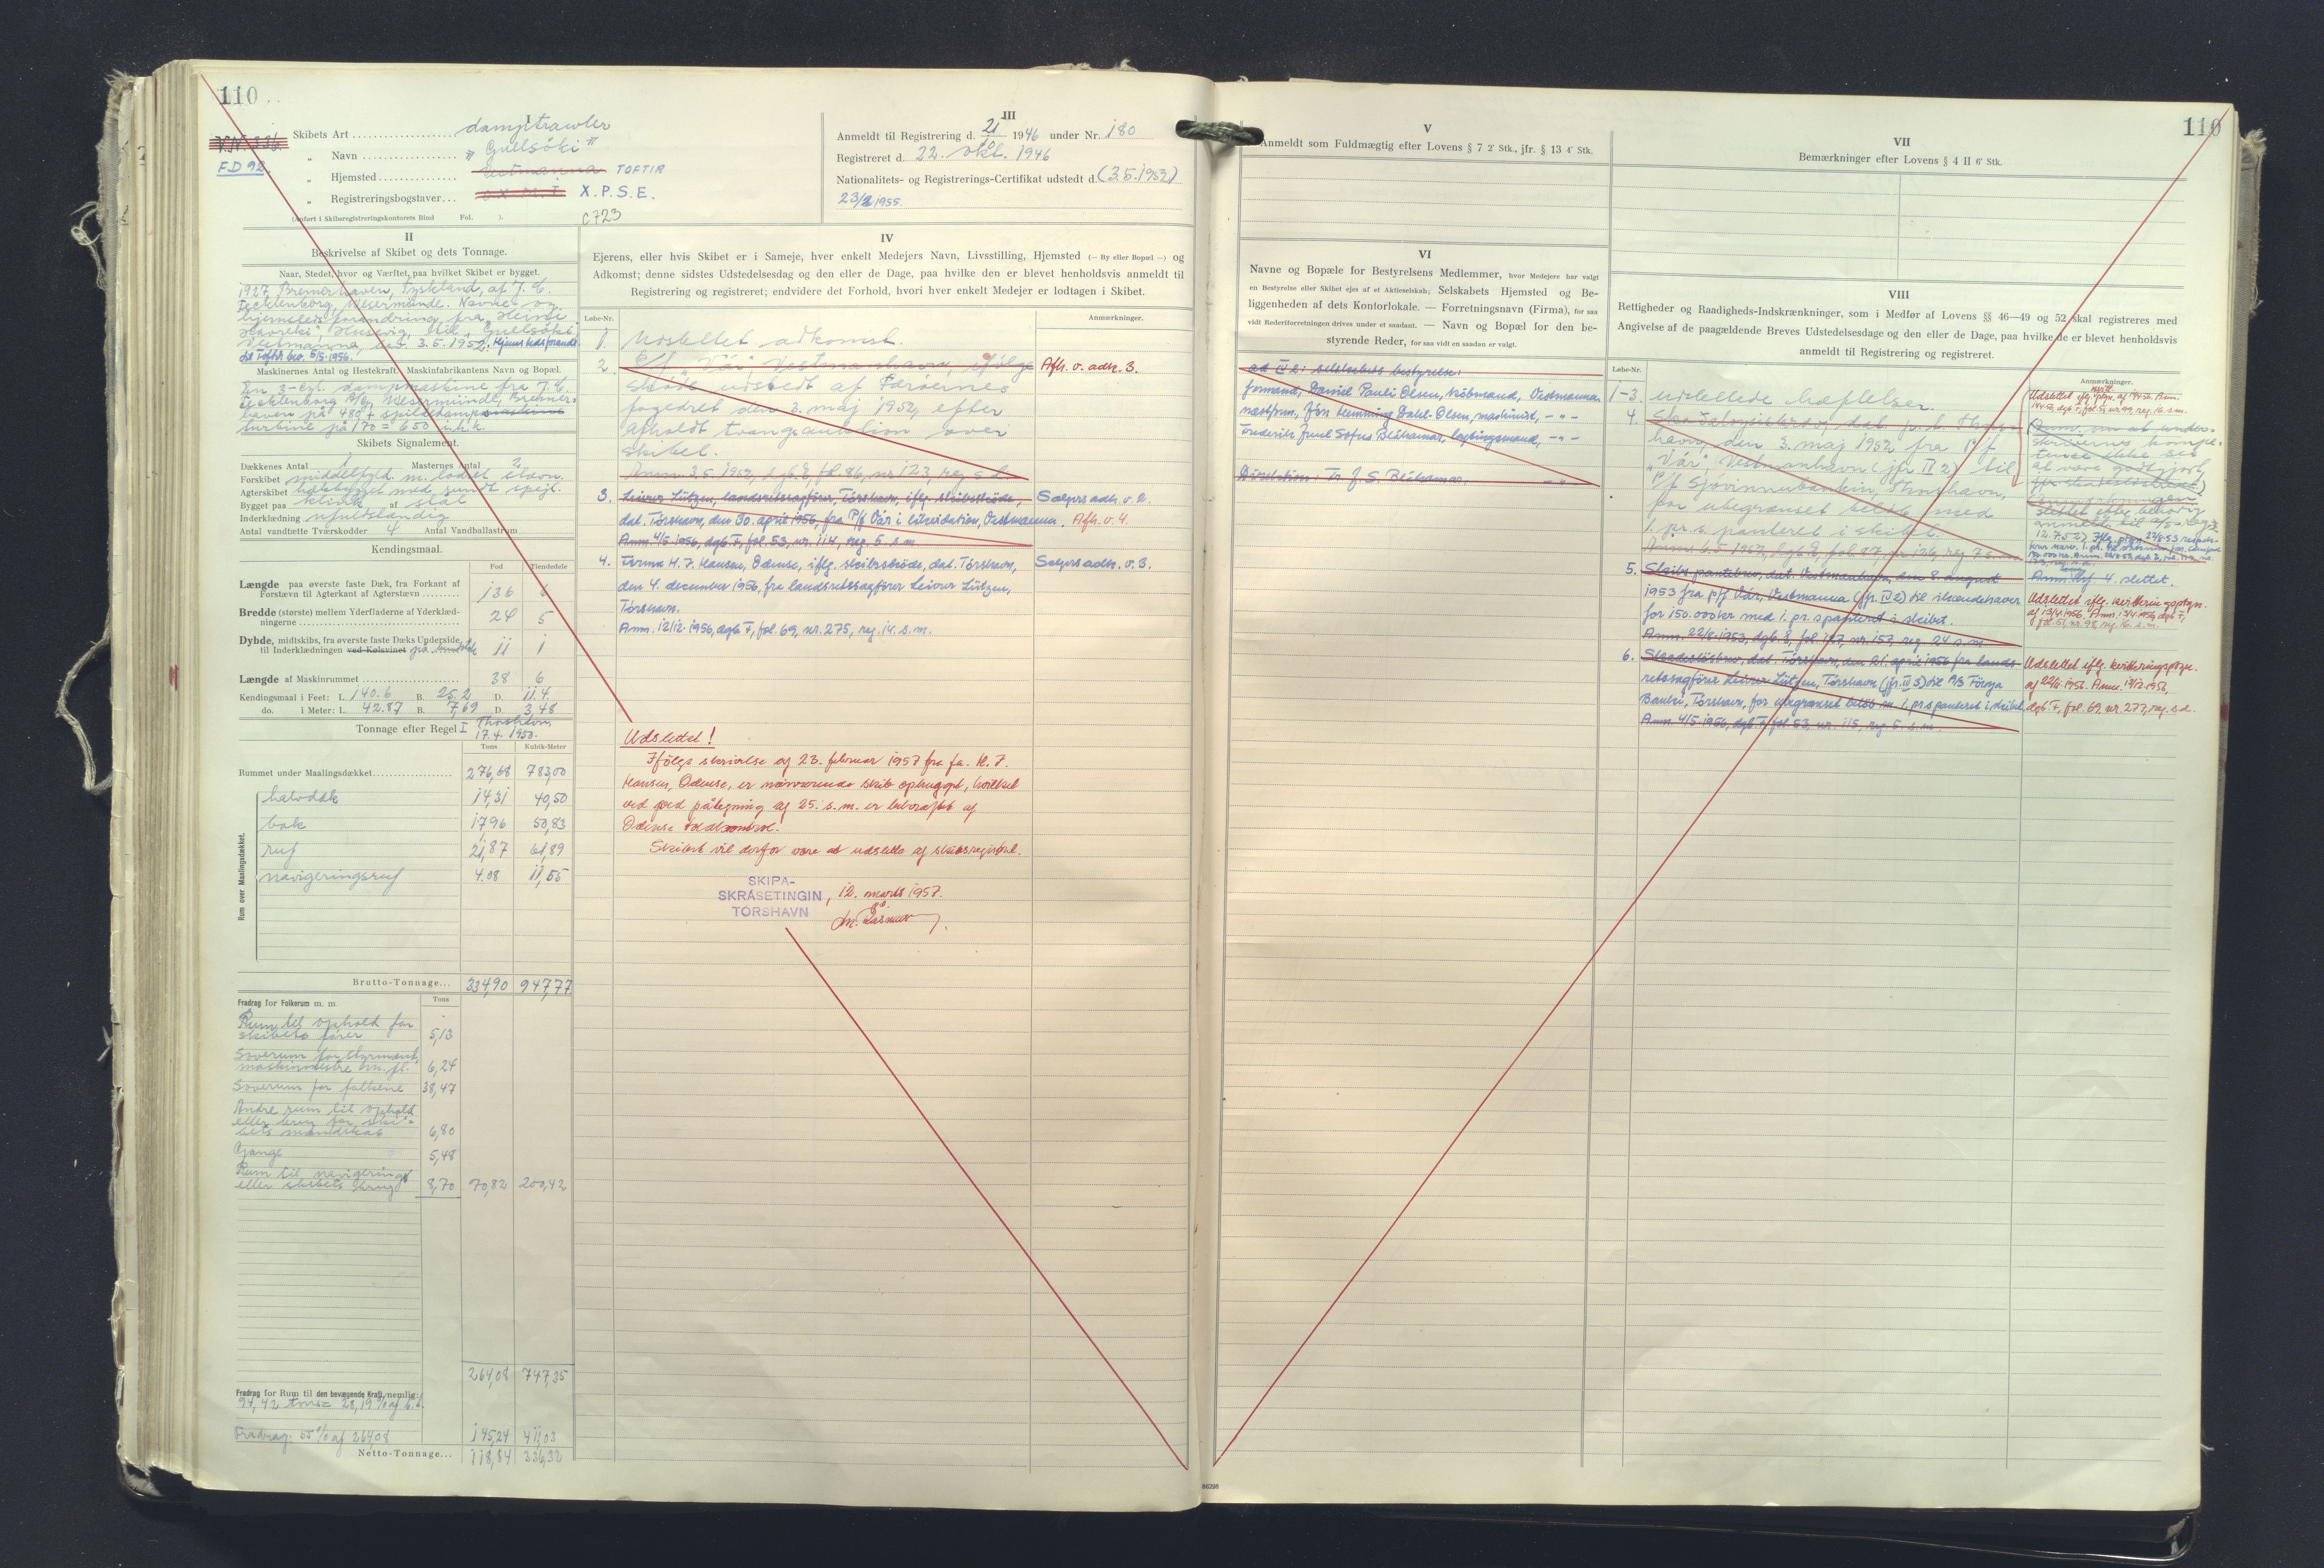 110
V.N. 336.
FD 92.
I
Skibets Art damptrawler
„ Navn "Gullsóki"
„ Hjemsted Vestmanna TOFTIR
„ Registreringsbogstaver X.P.S.E.
(Anført i Skibsregistreringskontorets Bind Fol. ).
C723
III
Anmeldt til Registrering d. 21/10 1946 under Nr. 180
Registreret d. 22. okt. 1946
Nationalitets- og Registrerings-Certifikat udstedt d. (3.5.1952)
23/2 1955.
II
Beskrivelse af Skibet og dets Tonnage.
Naar, Stedet, hvor og Værftet, paa hvilket Skibet er bygget.
1927, Bremerhaven, Tyskland, af J.C.
Tecklenborg, Wesermünde. Navnet og
hjemstedsforandring fra "Heini
Havreki", Húsavig, til "Gullsóki",
Vestmanna, 3.5.1952. Hjemstedsforandr.
til Toftir 5/5-1956.
Maskinernes Antal og Hestekraft. Maskinfabrikantens Navn og Bopæl.
En 3-cyl. dampmaskine fra J.C.
Tecklenborg A/G, Wesermünde, Bremer-
haven på 480 + spildedampsmaskine
turbine på 170 = 650 i.h.k.
Skibets Signalement.
Dækkenes Antal 1 Masternes Antal 2
Forskibet middelfyld. m. lodret stævn.
Agterskibet hækbygget med rundt spejl.
Bygget paa klink af stål
Inderklædning ufuldstændig
Antal vandtætte Tværskodder 4 Antal Vandballastrum
Kendingsmaal.
Fod Tiendedele
Længde paa øverste faste Dæk, fra Forkant af
Forstævn til Agterkant af Agterstævn 136 6
Bredde (største) mellem Yderfladerne af Yderklæd-
ningerne 24 5
Dybde, midtskibs, fra øverste faste Dæks Underside,
til Inderklædningen ved Kølsvinet på bundstok 11 1
Længde af Maskinrummet 38 6
Kendingsmaal i Feet: L. 140.6 B. 25.2 D. 11.4
do. i Meter: L. 42.87 B. 7,69 D. 3,48
Tonnage efter Regel I Thorshavn,
17.4. 1950.
Tons Kubik-Meter
Rummet under Maalingsdækket 276,68 783,00
Rum over Maalingsdækket.
halvdæk 14,31 40,50
bak 17,96 50,83
ruf 21,87 61,89
navigeringsruf 4.08 11,55
Brutto-Tonnage... 334,90 947,77
Fradrag for Folkerum m. m. Tons
Rum til ophold for
skibets fører 5,13
Soverum for styrmænd,
maskinmestre m. fl. 6,24
Soverum for folkene 38,47
Andre rum til ophold
eller brug for ski-
bets mandskab 6,80
Gange 5,48
Rum til navigering
eller skibets brug 8,70 70,82 200,42
264,08 747,35
Fradrag for Rum til den bevægende Kraft, nemlig:
94,42 tons = 28,19 % af b.t.
Fradrag: 55 % af 264,08 145,24 411,03
Netto-Tonnage... 118,84 336,32
IV
Ejerens, eller hvis Skibet er i Sameje, hver enkelt Medejers Navn, Livsstilling, Hjemsted (— By eller Bopæl —) og
Adkomst; denne sidstes Udstedelsesdag og den eller de Dage, paa hvilke den er blevet henholdsvis anmeldt til
Registrering og registreret; endvidere det Forhold, hvori hver enkelt Medejer er lodtagen i Skibet.
Løbe-Nr. Anmærkninger.
1. Udslettet adkomst.
2. P/f "Vár" Vestmanhavn, ifølge Afh. v. adk. 3.
skøde udstedt af Færøernes
fogedret den 3. maj 1952, efter
afholdt tvangsauktion over
skibet.
Anm. 3.5.1952, dgb. E, fol. 86, nr. 123, reg. s.d.
3. Leivur Lützen, landsretssagfører, Tórshavn, iflg. skibsskøde, Sælgers adk. v. 2.
dat. Tórshavn, den 30. april 1956, fra P/f Vár i likvidation, Vestmanna. Afh. v. 4.
Anm. 4/5-1956, dgb. F, fol. 53, nr. 114, reg. 5. s.m.
4. Firma H.J. Hansen, Odense, iflg. skibsskøde, dat. Tórshavn, Sælgers adk. v. 3.
den 4. december 1956, fra landsretssagfører Leivur Lützen,
Tórshavn.
Anm. 12/12-1956, dgb. F, fol. 69, nr. 275, reg. 14. s.m.
Udslettet!
Ifølge skrivelse af 23. februar 1957 fra fa. H.J.
Hansen, Odense, er nærværende skib ophugget, hvilket
ved påtegning af 25. s.m. er bekræftet af
Odense toldkontrol.
Skibet vil derfor være at udslette af skibsregistret.
SKIPA-
SKRÁSETINGIN
TÓRSHAVN
, 12. marts 1957.
V
Anmeldt som Fuldmægtig efter Lovens § 7 2' Stk., jfr. § 13 4' Stk.
VI
Navne og Bopæle for Bestyrelsens Medlemmer, hvor Medejere har valgt
en Bestyrelse eller Skibet ejes af et Aktieselskab; Selskabets Hjemsted og Be-
liggenheden af dets Kontorlokale. — Forretningsnavn (Firma), for saa
vidt Rederiforretningen drives under et saadant. — Navn og Bopæl for den be-
styrende Reder, for saa vidt en saadan er valgt.
ad IV 2: selskabets bestyrelse:
formand, Daniel Pauli Olsen, købmand, Vestmanna
næstform., Jón Hemming Dahl-Olsen, maskinist, - " -
Frederik Juul Sofus Bláhamar, løgtingsmand, - " -
Direktion: Fr. J. S. Bláhamar, - " -
110
VII
Bemærkninger efter Lovens § 4 II 6' Stk.
VIII
Rettigheder og Raadigheds-Indskrænkninger, som i Medfør af Lovens §§ 46—49 og 52 skal registreres med
Angivelse af de paagældende Breves Udstedelsesdage og den eller de Dage, paa hvilke de er blevet henholdsvis
anmeldt til Registrering og registreret.
Løbe-Nr. Anmærkninger.
1-3. udslettede hæftelser.
4. Skadesløsbrev, dat. Thors-
havn, den 3. maj 1952 fra P/f
"Vár", Vestmanhavn (jfr. IV 2) til
P/f Sjóvinnubankin, Thorshavn,
for ubegrænset beløb med
1. pr.s. panteret i skibet.
Anm. 6.5.1952, dgb. E, fol. 87, nr. 126, reg. 7. s.m.
Anm. hæf 4. slettet.
5. Skibspantebrev, dat. Vestmanhavn, den 8. august
1953 fra p/f Vár, Vestmanna (jfr. IV 2) til ihændehaver
for 150.000 kr med 1. pr.s panteret i skibet.
Anm. 22/8-1953, dgb. E, fol. 117, nr. 157, reg. 24. s.m.
Udslettet iflg. kvitteringspåtegn.
af 13/4-1956, Anm. 13/4-1956, dgb. F,
fol. 51, nr. 98, reg. 16. s.m.
6. Skadesløsbrev, dat. Tórshavn, den 21. april 1956 fra lands-
retssagfører Leivur Lützen, Tórshavn (jfr. IV 3) til A/S Føroya
Banki, Tórshavn, for ubegrænset beløb m. 1. pr.s panteret i skibet.
Anm. 4/5-1956, dgb. F, fol. 53, nr. 115, reg. 5. s.m.
Udslettet iflg. kvitteringspåtgn.
af 22/11-1956. Anm. 13/12-1956,
dgb. F, fol. 69, nr. 277, reg. s.d.
86298